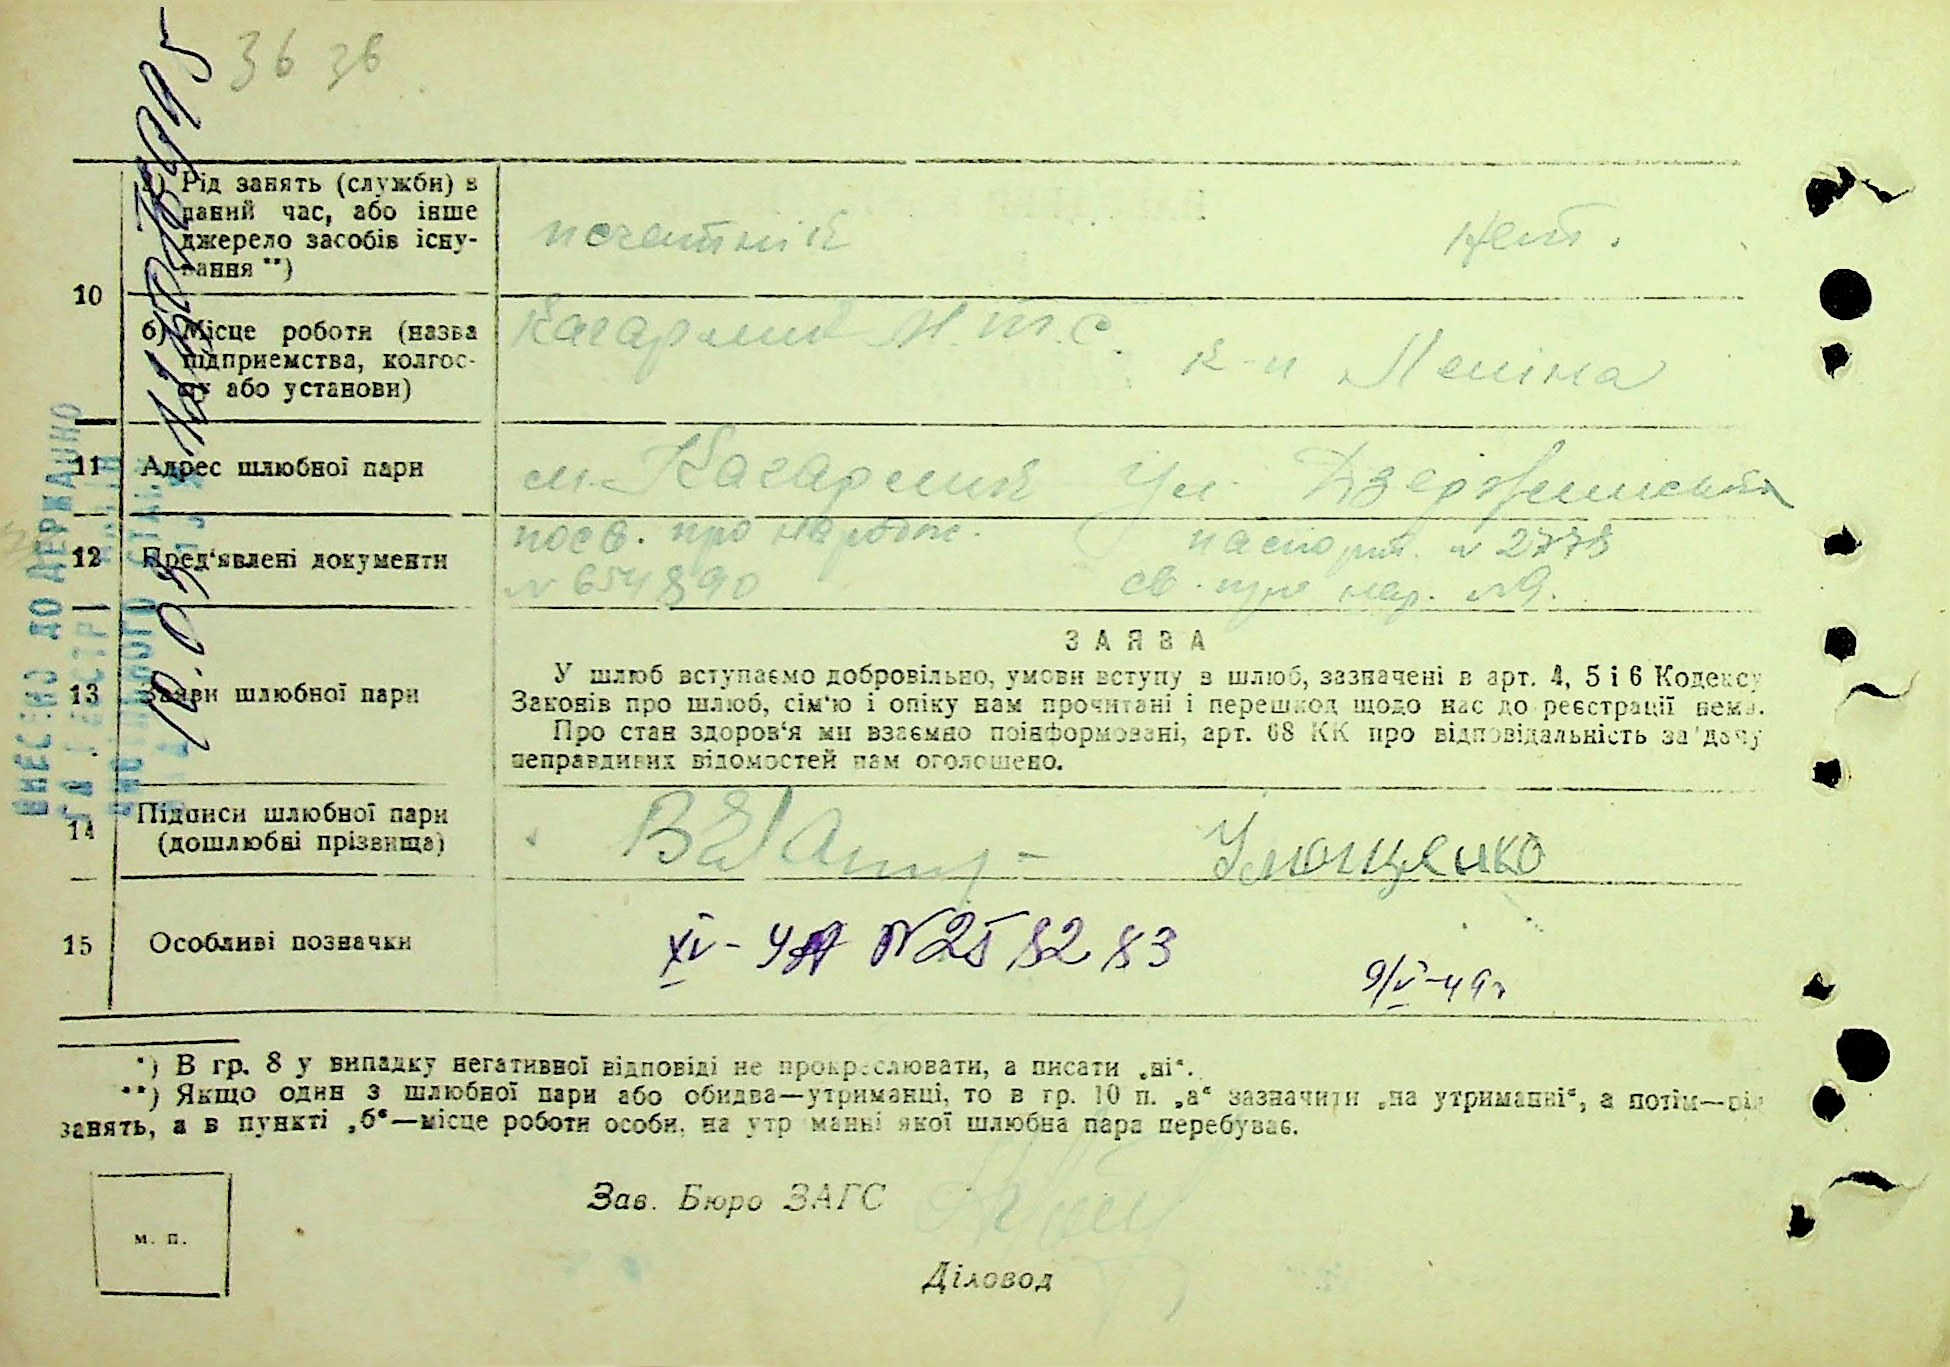 36 36
10
а) Рід занять (служби) в
даний час, або інше
джерело засобів існу-
вання **)
печатник
нет.
б) Місце роботи (назва
підприемства, колгос-
пу або установи)
Кагарлик М.Т.С.
к-п Леніна
11
Адрес шлюбної пари
м. Кагарлик Ул. Дзержинська
12
Пред'явлені документи
посв. про народж.
N 654890
паспорт. N 2778
св. про нар. N9.
13
Заяви шлюбної пари
ЗАЯВА
У шлюб вступаємо добровільно, умови вступу в шлюб, зазначені в арт. 4, 5 і 6 Кодексу
Законів про шлюб, сім'ю і опіку нам прочитані і перешкод щодо нас до реєстрації нема.
Про стан здоров'я ми взаємно поінформовані, арт. 68 КК про відповідальність за дачу
неправдивих відомостей нам оголошено.
14
Підписи шлюбної пари
(дошлюбні прізвища)
15
Особливі позначки
XIV-УА N258283
9/V-49г
*) В гр. 8 у випадку негативної відповіді не прокреслювати, а писати „ні“.
**) Якщо один з шлюбної пари або обидва—утриманці, то в гр. 10 п. „а“ зазначити „на утриманні“, а потім—рід
занять, а в пункті „б“—місце роботи особи, на утриманні якої шлюбна пара перебуває.
м. п.
Зав. Бюро ЗАГС
Діловод
ВНЕСЕНО ДО ДЕРЖАВНО